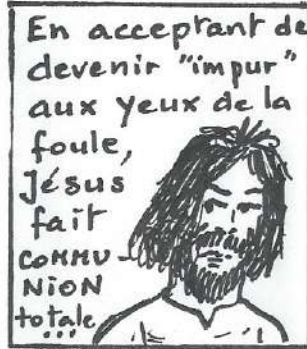 En acceptant de
devenir "impur"
aux yeux de la
foule,
Jésus
fait
COMMU-
NiON
totale
...